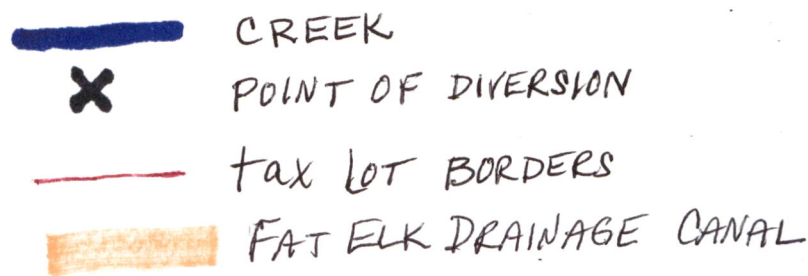 CREEK
POINT OF DIVERSION
tax LOT BORDERS
FAT ELK DRAINAGE CANAL